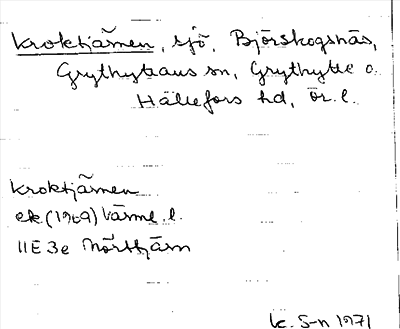 Kroktjärnen, sjö, Björskogsnäs,
Grythyttans sn, Grythytte o.
Hällefors hd, Ör. l.
Kroktjärnen
ek. (1969) Värml. l.
11E 3e Mörttjärn
K. S-n 1971